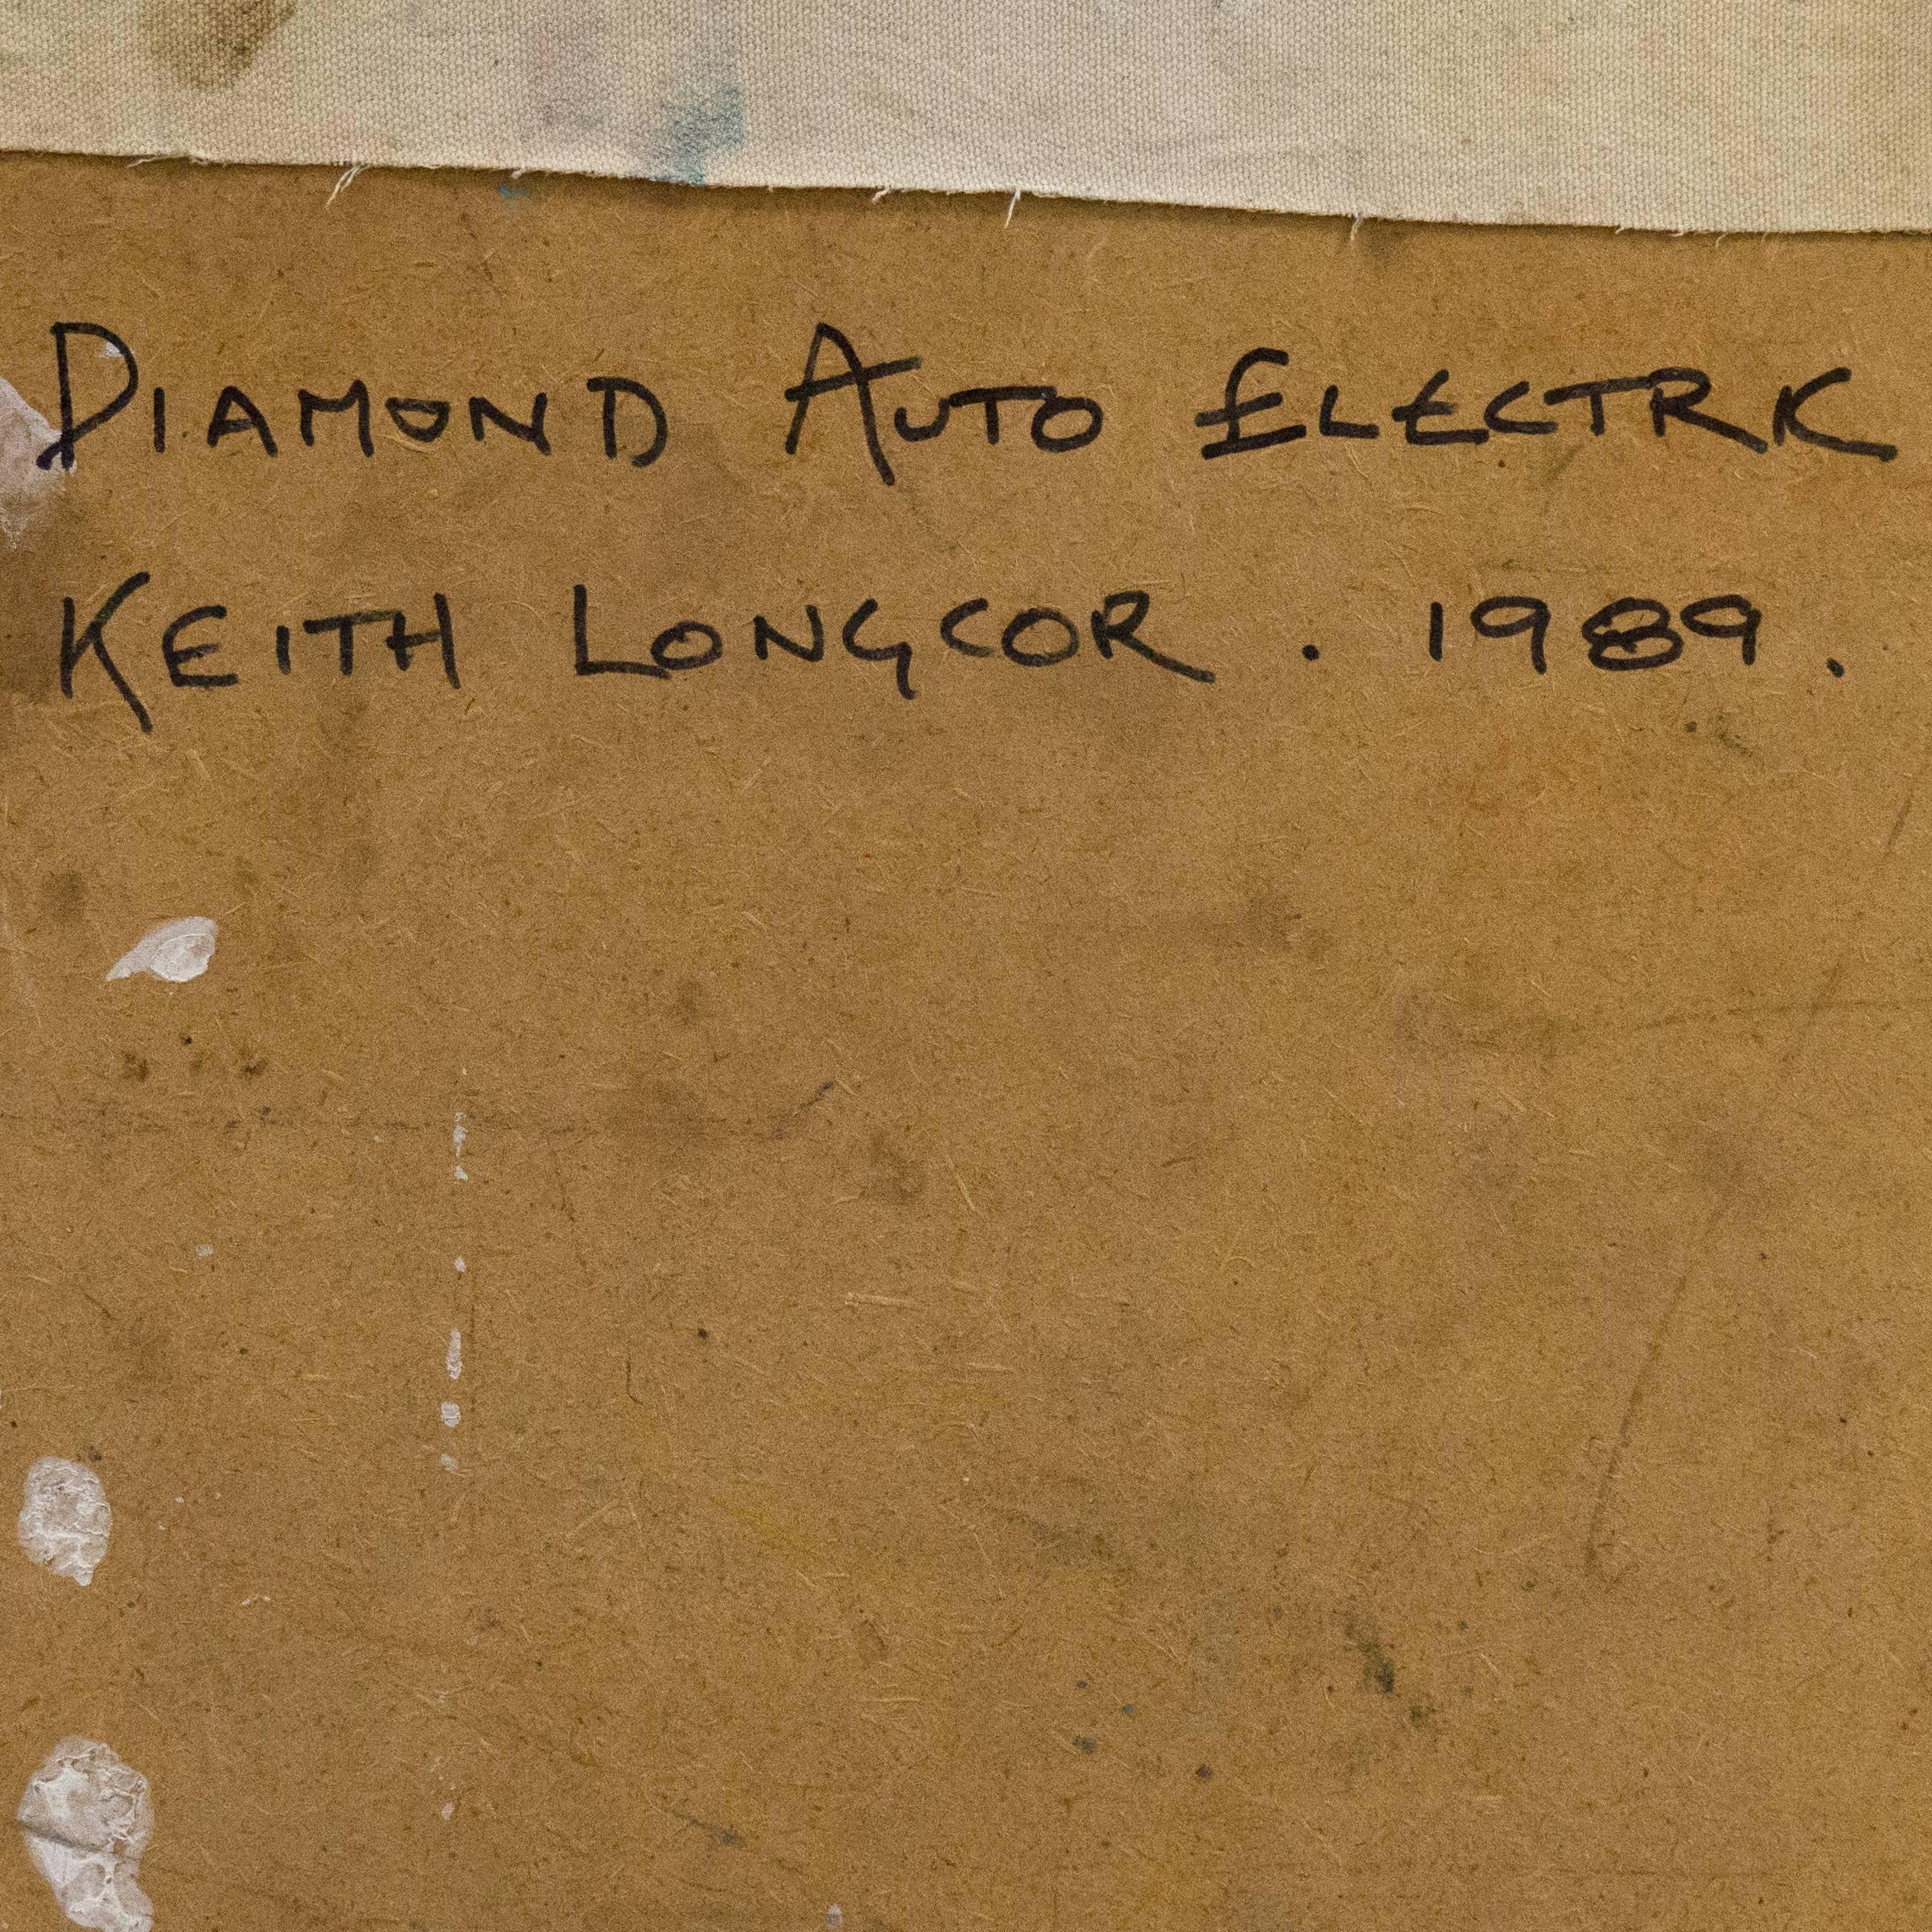 DIAMOND AUTO ELECTRIC
KEITH LONGCOR . 1989.